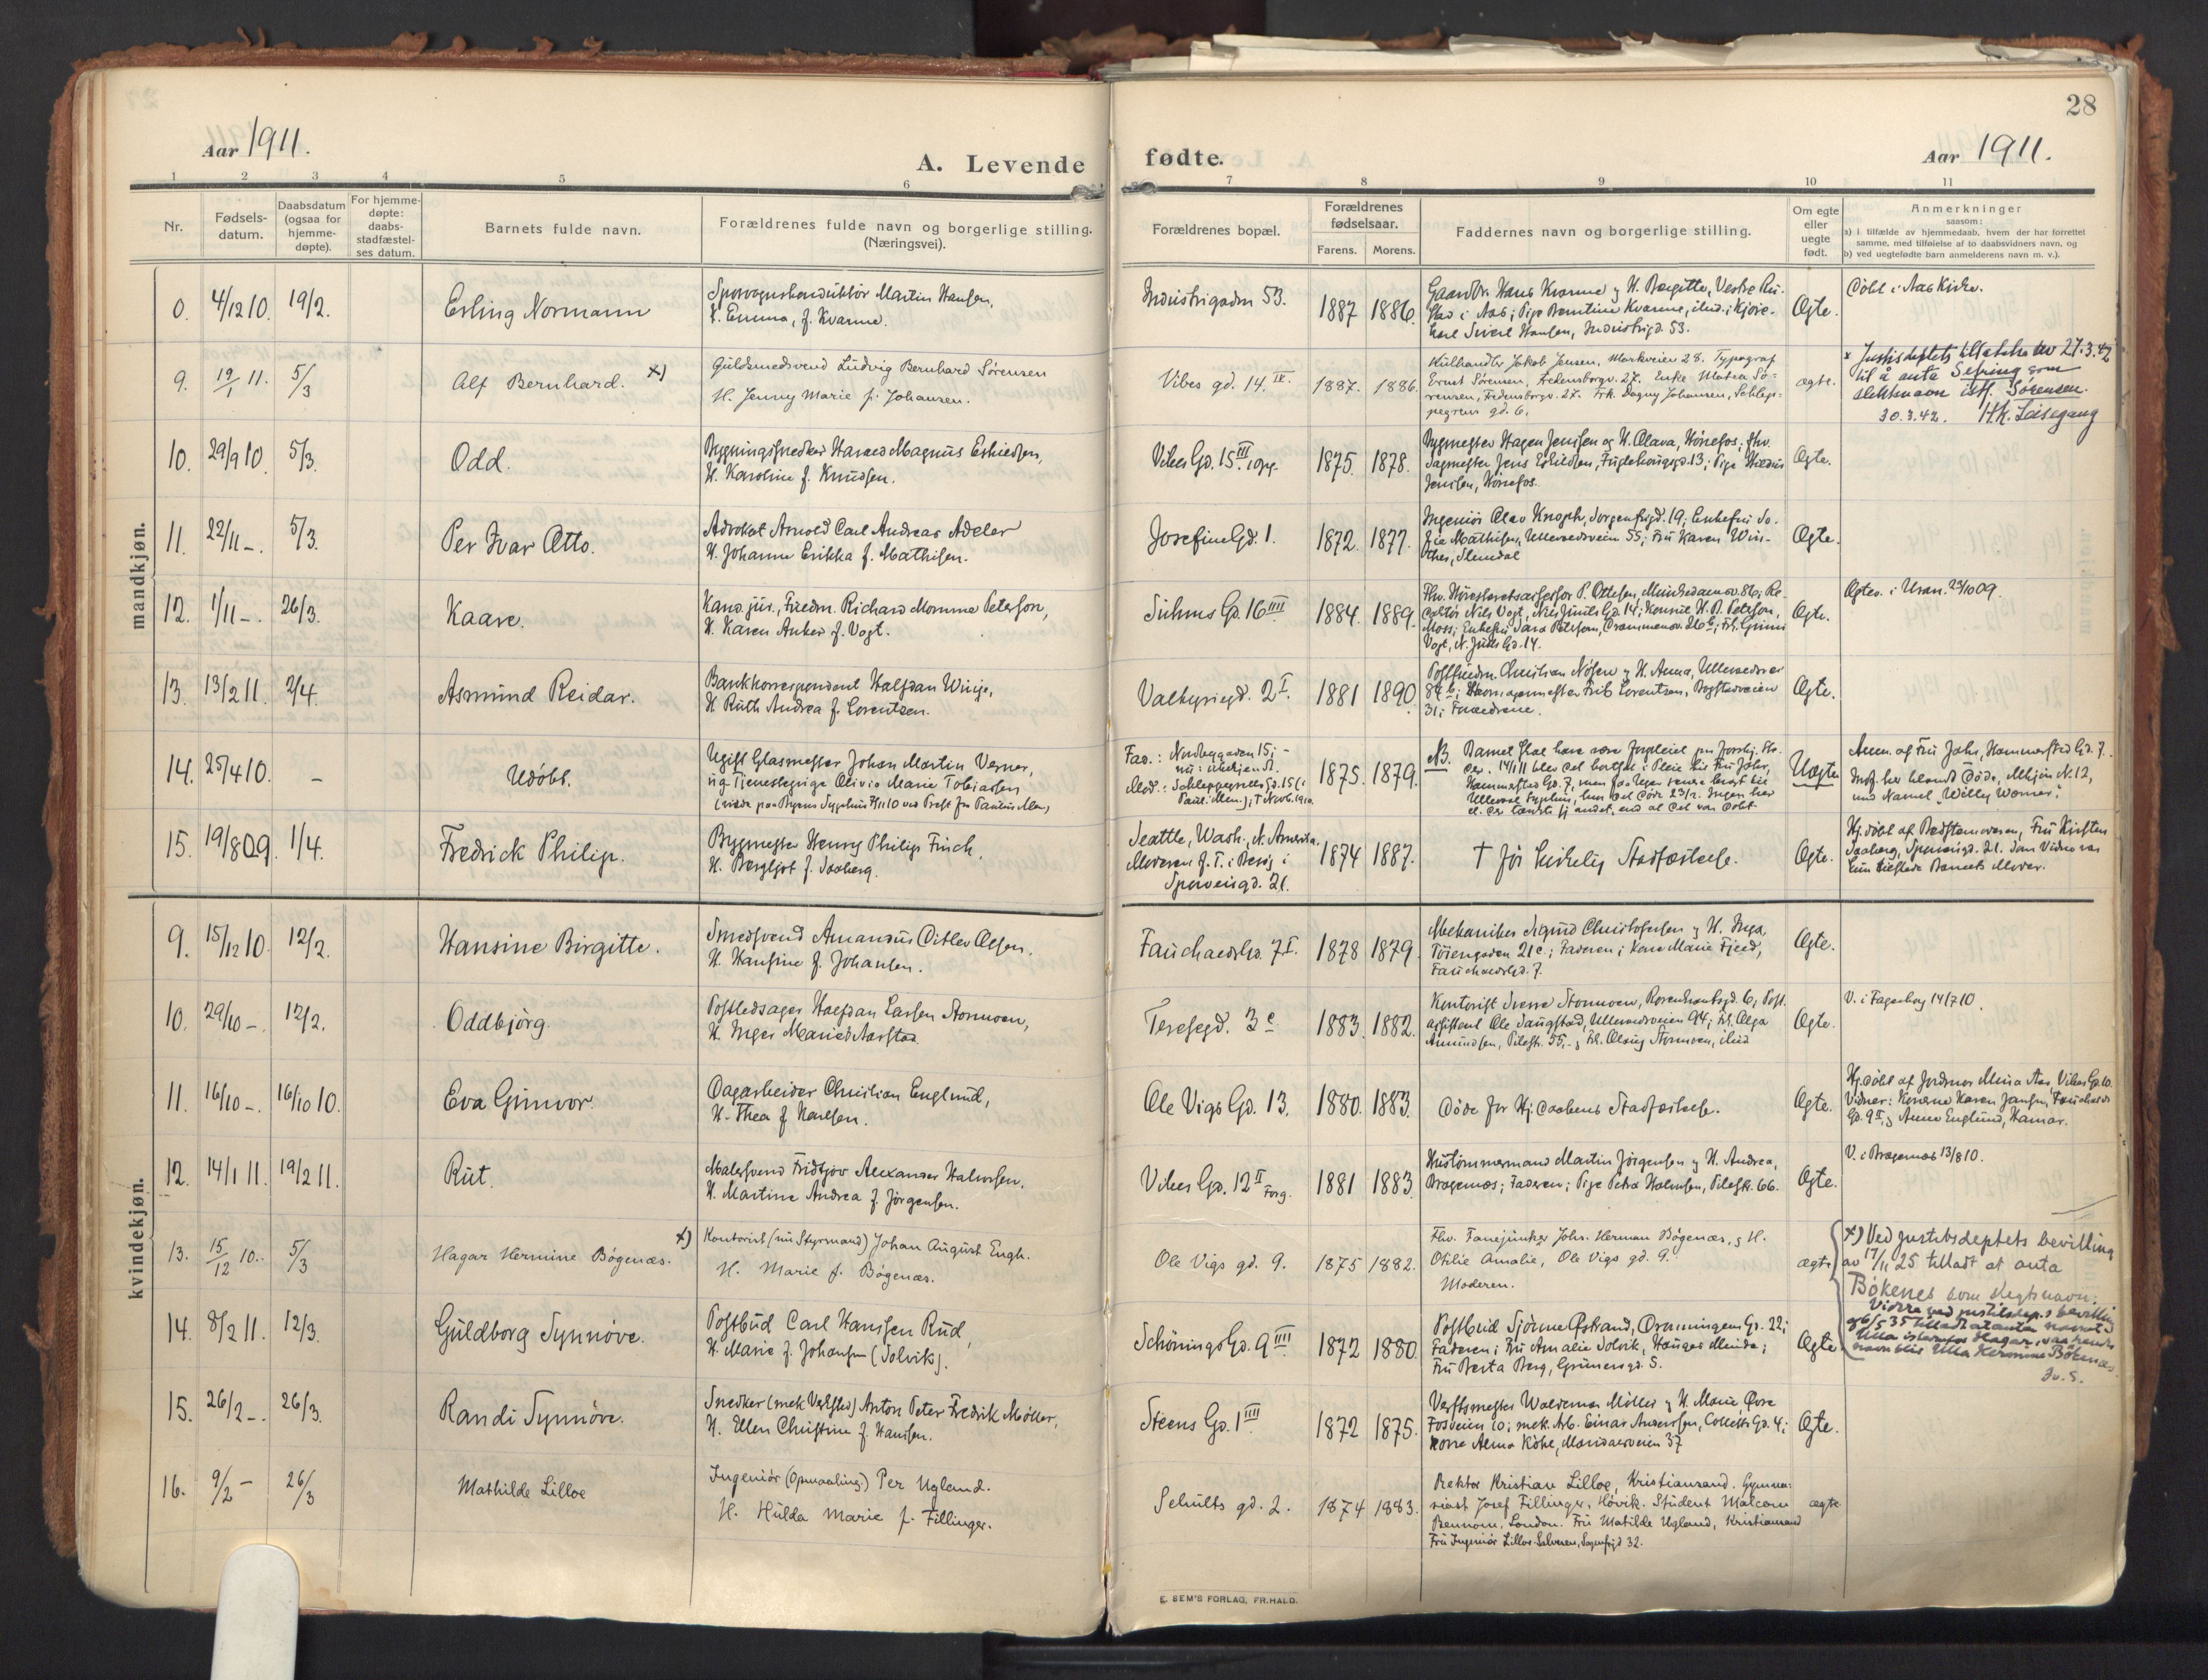 28
Aar 1911.
A. Levende fødte.
Aar 1911.
1 2 3 4 5 6 7 8 9 10 11
Nr.
Fødsels-
datum.
Daabsdatum
(ogsaa for
hjemme-
døpte).
For hjemme-
døpte:
daabs-
stadfæstel-
ses datum.
Barnets fulde navn.
Forældrenes fulde navn og borgerlige stilling.
(Næringsvei).
Forældrenes bopæl.
Forældrenes
fødselsaar.
Farens. Morens.
Faddernes navn og borgerlige stilling.
Om egte
eller
uegte
født.
Anmerkninger
saasom:
a) i tilfælde av hjemmedaab, hvem der har forrettet
samme, med tilføielse af to daabsvidners navn, og
b) ved uegtefødte barn anmelderens navn m. v.).
mandkjøn.
0. 4/12 10. 19/2. Erling Normann
Sporvognskonduktör Martin Hansen,
H. Emma, f. Kvarme.
Industrigaden 53. 1887 1886.
Gaardbr. Hans Kvarme og H. Birgitte, Vestre
i Aas; Pige Berntine Kvarme, ibid.;
Karl Sivert Hansen, Industrigd. 53.
Egte.
Döbt i Aas Kirke.
9. 19/1 11. 5/3 Alf Bernhard. x)
Guldsmedsvend Ludvig Bernhard Sörensen
H. Jenny Marie f. Johansen.
Vibes gd. 14 IV. 1887. 1886.
Kulhandler Jakob Jensen, Markveien 28. Typograf
Ernst Sörensen, Fredensborgv. 27. Enke Matea Sö-
rensen, Fredensborgv. 27. Frk. Dagny Johansen, Schlep-
pegrens gd. 6.
ægte.
x Justisdeptets tillatelse av 27.3.42
til å anta Sefring som
slektsnavn istf. Sörensen.
30.3.42. H.K. Leisegang
10. 29/9 10. 5/3. Odd.
Bygningssnedker Harald Magnus Eskildsen,
H. Karoline f. Knudsen.
Vibes Gd. 15 III. opg. 1875. 1878.
Bygmester Hagen Jensen og H. Olava, Hönefos; fhv.
Sagmester Jens Eskildsen, Fuglehaugsgd. 13; Pige
Jensen, Hönefos.
Egte.
11. 22/11 -. 5/3. Per Ivar Otto.
Advokat Arnold Carl Andreas Adeler
H. Johanne Erikka f. Mathisen.
Josefine Gd. 1. 1872. 1877.
Ingeniör Olav Knoph, Sorgenfrigd. 19; Enkefru So-
fie Mathisen, Ullevoldsveien 55; Fru Karen Win-
ther, Slemdal
Egte.
12. 1/11 -. 26/3. Kaare.
Kand. jur., Fuldm. Richard Momme Peterson,
H. Karen Anker f. Vogt.
Suhms Gd. 16 IIII. 1884. 1889.
Fhv. Höiesteretsassessor P. Ottesen, Munkedamsv. 86; Re-
daktör Nils Vogt, Niels Juels Gd. 14; Konsul H. B. Peterson,
Moss; Enkefru Sara Peterson, Drammensv. 26 b; Frk.
Vogt, N. Juels Gd. 14.
Egte.
Egtev. i Uran. 23/10 09.
13. 13/2 11. 2/4. Asmund Reidar.
Bankkorrespondent Halfdan Winge,
H Ruth Andrea f. Lorentzen.
Valkyriegd. 2 I. 1881 1890.
Postfuldm. Christian Nösen og H. Anna, Ullevoldsvei
84 b; Fritz Lorentzen, Bogstadveien
31; Forældrene.
Egte.
14. 25/4 10. - Udöbt.
Ugift Glasmester Johan Martin Verner,
ug. Tjenestepige Olivia Marie Tobiassen
Fad.: Norbygaden 15; -
nu: ubekjendt.
Mod.: Schleppegrells Gd. 15
1875. 1879.
NB. Barnet skal have
Uegte
Anm. af Fru Jahr, Hammerstad Gd. 7.
15. 19/8 09. 1/4. Fredrick Philip.
Bygmester Henry Philip Finch,
H. Bergljot f. Saaberg.
Seattle, Wash., N. Amerika.
Moderen f. T. i Besög i
Sporveisgd. 21.
1874 1887.
† för kirkelig Stadfæstelse.
Egte.
Hj. döbt af Bedstemoderen, Fru Kirsten
Saaberg, Sporveisgd. 21. Som Vidne var
kun tilstede Barnets Moder.
kvindekjøn.
9. 15/12 10. 12/2. Hansine Birgitte.
Smedsvend Amandus Ditlev Olsen.
H. Hansine f. Johansen.
Fauchalds Gd. 7 I. 1878 1879.
Mekaniker Sigurd Christophersen og H. Inga,
Töiengaden 21 c.; Faderen; Kone Marie Fjeld,
Fauchalds Gd. 7.
Egte.
10. 29/10 -. 12/2. Oddbjörg.
Postledsager Halfdan Larsen Stormoen,
H. Inger Marie f. Aarstad.
Teresegd. 3 c. 1883. 1882.
Kontorist Sverre Stormoen, Rosenkrantzgd. 6; Post-
assistent Ole Saugstad, Ullevoldsveien 94; Frk. Olga
Amundsen, Pilestr. 55, - og Frk. Stormoen, ibid
Egte.
V. i Fagerborg 14/7 10.
11. 16/10 -. 16/10 10. Eva Gunvor.
Dagarbeider Christian Englund,
H. Thea f Karlsen.
Ole Vigs Gd. 13. 1880. 1883.
Döde för Hj. Daabens Stadfæstelse.
Egte.
Hj. döbt af Jordmor Mina Aas, Vibes Gd. 10.
Vidner: Konerne Karen Jansen, Fauchalds
Gd. 9 I, og Anne Englund, Hamar.
12. 14/1 11. 19/2 11. Rut.
Malersvend Fridtjov Alexander Halvorsen.
H. Martine Andrea f. Jörgensen.
Vibes Gd. 12 II Forg. 1881 1883.
Hustömmermand Martin Jörgensen og H. Andrea,
Bragernæs; Faderen; Pige Petra Halvorsen, Pilestr. 66.
Egte.
V. i Bragernæs 13/8 10.
13. 15/12 10. 5/3 Hagar Hermine Bögenæs. x)
Kontorist (nu Styrmand) Johan August Engh.
H. Marie f. Bögenæs.
Ole Vigs gd. 9. 1875 1882.
Fhv. Fanejunker Johs. Herman Bögenæs, og H.
Otilie Amalie, Ole Vigs gd. 9.
Moderen.
ægte
x) Ved justitsdeptets bevilling
av 17/11 25 tilladt at anta
Bökenes som slegtsnavn.
Videre ved justisdep.s bevilling
af 6/5 35 tilladt at anta navnet
Ulla istedenfor Hagar, saa hendes
navn blir Ulla Hermine Bökenæs.
14. 8/2 11. 12/3. Guldborg Synnöve.
Postbud Carl Hansen Rud,
H. Marie f. Johansen (Solvik).
Schönings Gd. 9 IIII. 1872 1880.
Postbud Sjönne Östrand, Dronningens Gd. 22;
Faderen; Fru Amalie Solvik, Hauges Minde;
Fru Berta Berg, Grünersgd. 5.
Egte
15. 26/2 -. 26/3. Randi Synnöve.
Snedker (mek Verksted) Anton Peter Fredrik Möller,
H. Ellen Christine f. Hansen.
Steens Gd. 1 IIII. 1872 1875.
Verftsmester Waldemar Möller og H. Marie, Övre
Fosveien 10; mek. Arb. Einar Andersen, Colletts Gd. 4;
Alma Köhe, Maridalsveien 37
Egte.
16. 9/2 - 26/3 Mathilde Lilloe
Ingeniör (Opmaaling.) Per Ugland.
H. Hulda Marie f. Fillinger.
Schults gd. 2. 1874 1883.
Rektor Kristian Lilloe, Kristiansand. Gymna-
siast Josef Fillinger, Hövik. Student Malcom
Bennom, London. Fru Matilde Ugland, Kristiansand
Fru Ingeniör Lilloe-Salvesen, Sorgenfrigd 32.
ægte
E. SEM'S FORLAG, FR.HALD.